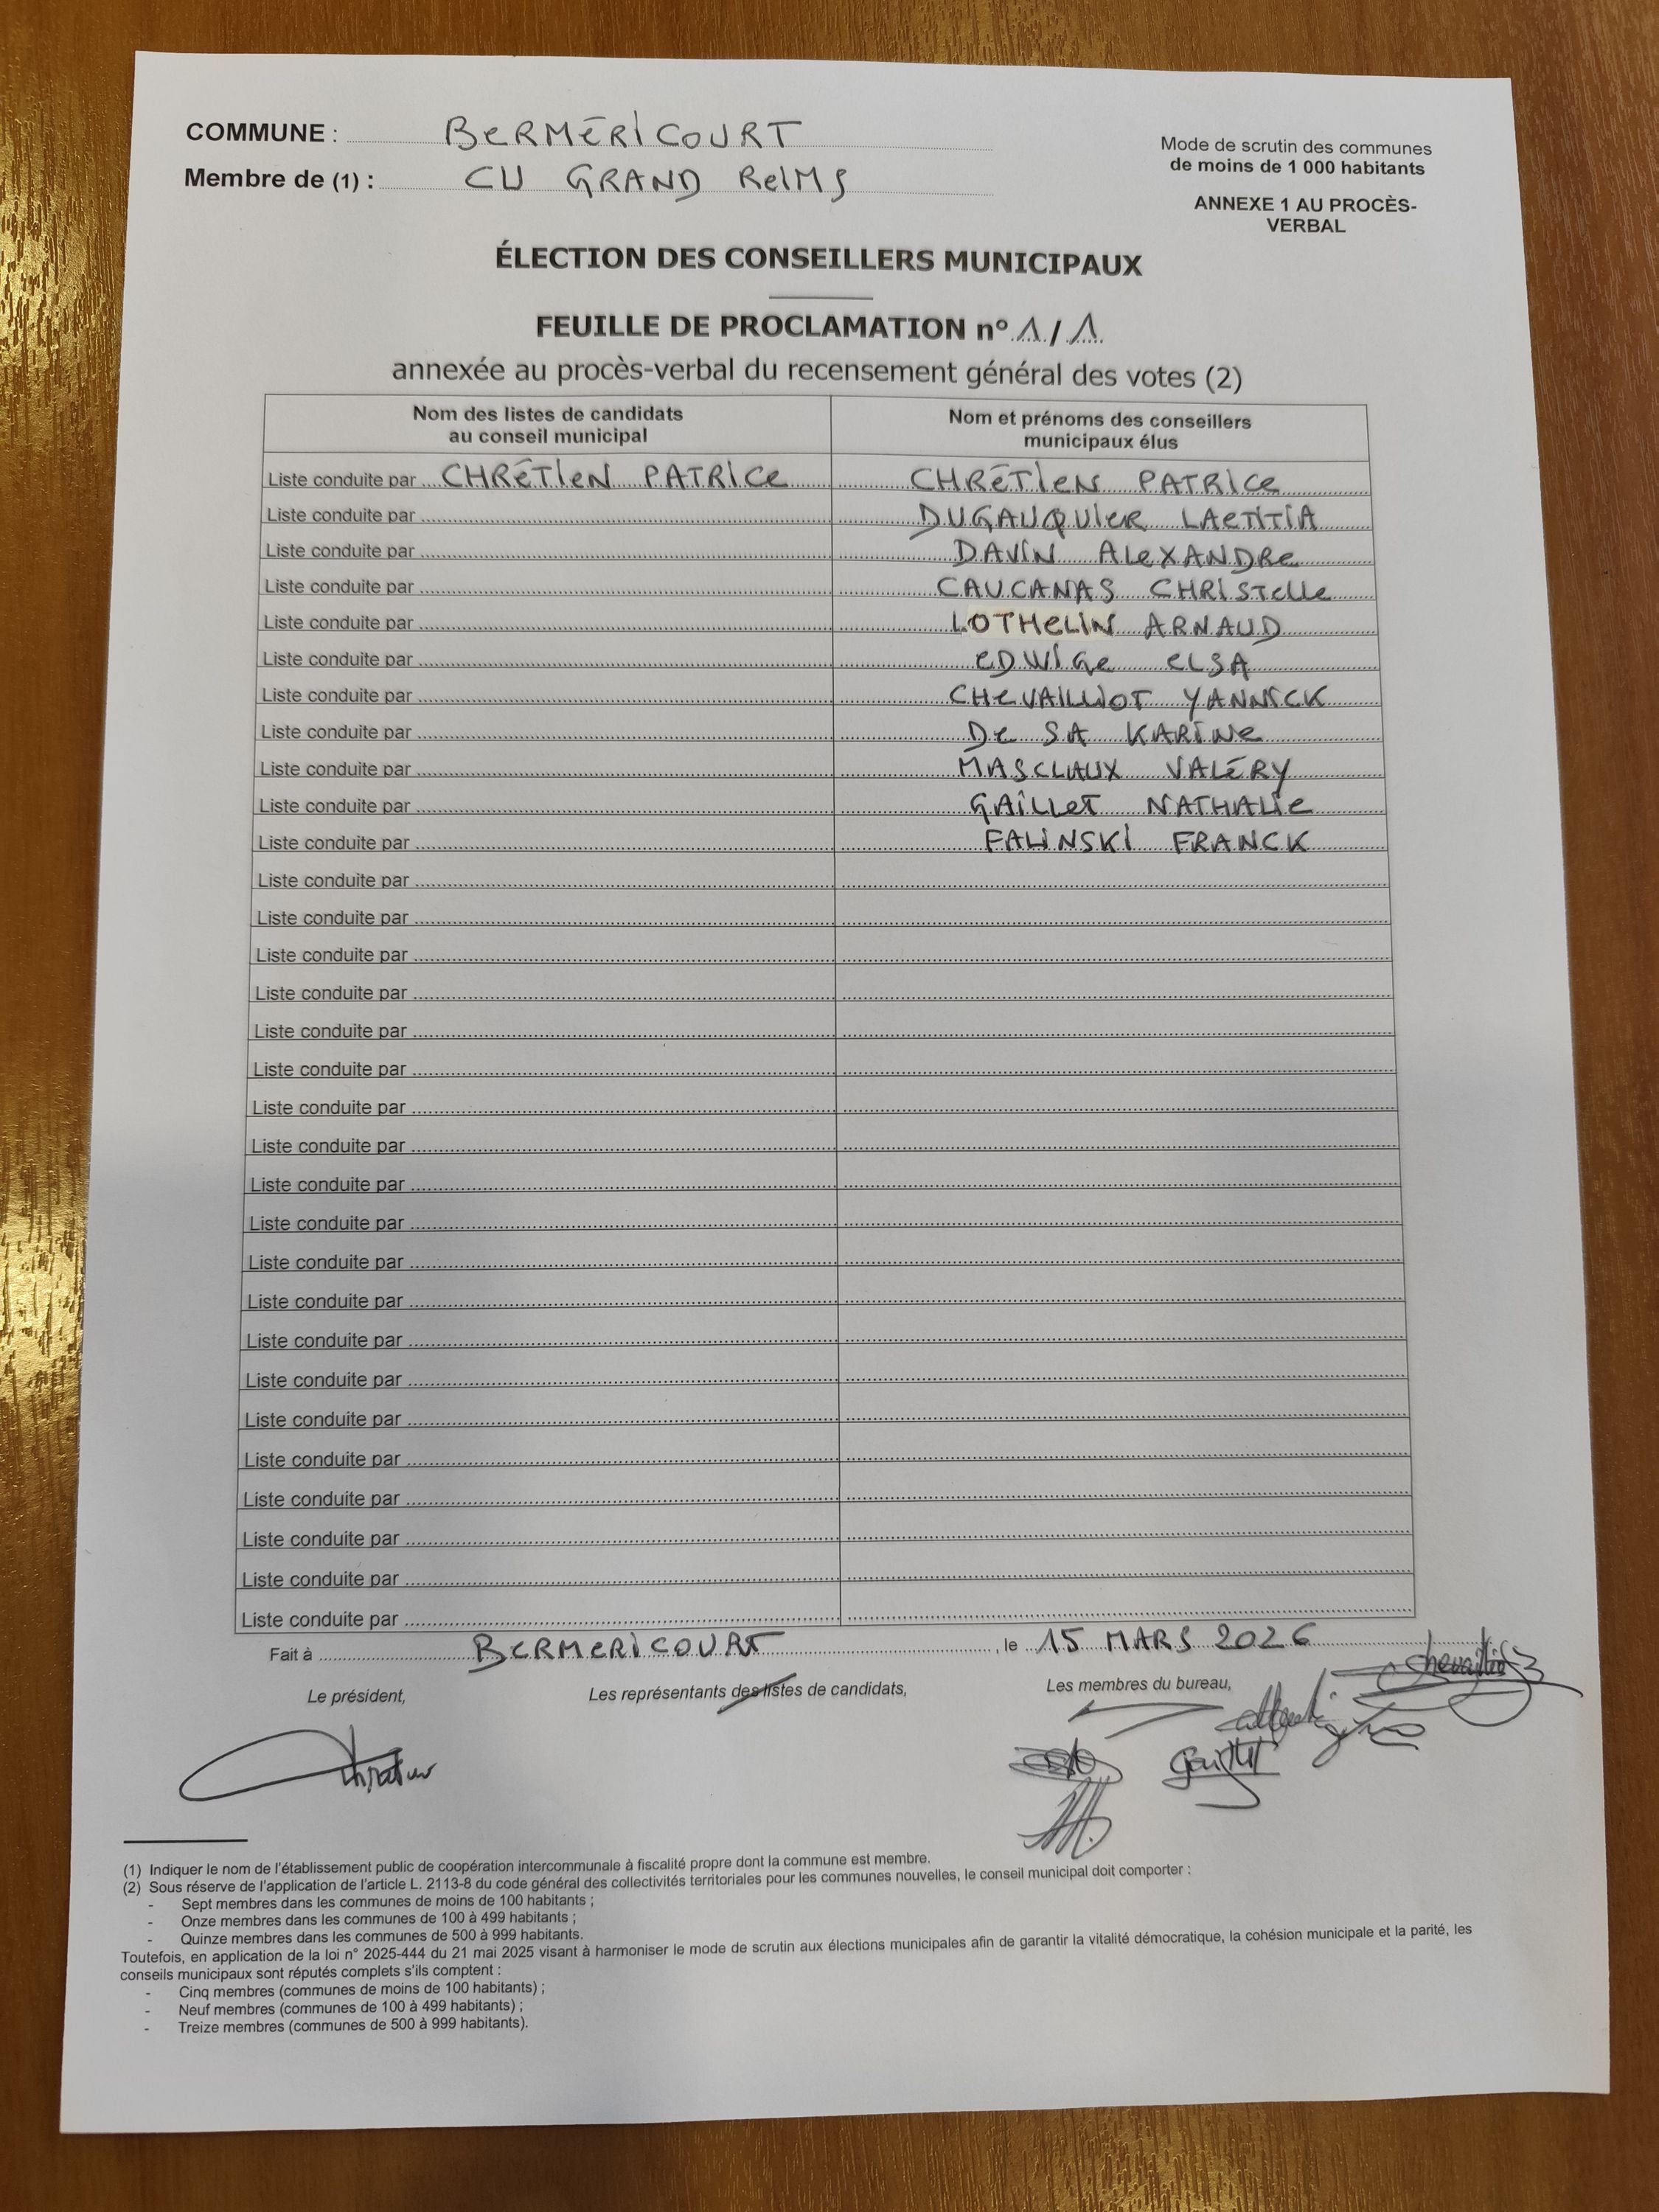 COMMUNE : BERMÉRICOURT
Membre de (1) : CU GRAND REIMS
Mode de scrutin des communes
de moins de 1 000 habitants
ANNEXE 1 AU PROCÈS-
VERBAL
ÉLECTION DES CONSEILLERS MUNICIPAUX
FEUILLE DE PROCLAMATION n° 1 / 1
annexée au procès-verbal du recensement général des votes (2)
Nom des listes de candidats
au conseil municipal
Nom et prénoms des conseillers
municipaux élus
Liste conduite par CHRÉTIEN PATRICE CHRÉTIEN PATRICE
Liste conduite par DUGAUQUIER LAETITIA
Liste conduite par DAVIN ALEXANDRE
Liste conduite par CAUCANAS CHRISTELLE
Liste conduite par LOTHELIN ARNAUD
Liste conduite par EDWIGE ELSA
Liste conduite par CHEVAILLIOT YANNICK
Liste conduite par DE SA KARINE
Liste conduite par MASCLAUX VALÉRY
Liste conduite par GAILLET NATHALIE
Liste conduite par FALINSKI FRANCK
Liste conduite par
Liste conduite par
Liste conduite par
Liste conduite par
Liste conduite par
Liste conduite par
Liste conduite par
Liste conduite par
Liste conduite par
Liste conduite par
Liste conduite par
Liste conduite par
Liste conduite par
Liste conduite par
Liste conduite par
Liste conduite par
Liste conduite par
Liste conduite par
Liste conduite par
Liste conduite par
Fait à BERMERICOURT , le 15 MARS 2026
Le président,
Les représentants des listes de candidats,
Les membres du bureau,
(1) Indiquer le nom de l'établissement public de coopération intercommunale à fiscalité propre dont la commune est membre.
(2) Sous réserve de l'application de l'article L. 2113-8 du code général des collectivités territoriales pour les communes nouvelles, le conseil municipal doit comporter :
- Sept membres dans les communes de moins de 100 habitants ;
- Onze membres dans les communes de 100 à 499 habitants ;
- Quinze membres dans les communes de 500 à 999 habitants.
Toutefois, en application de la loi n° 2025-444 du 21 mai 2025 visant à harmoniser le mode de scrutin aux élections municipales afin de garantir la vitalité démocratique, la cohésion municipale et la parité, les
conseils municipaux sont réputés complets s'ils comptent :
- Cinq membres (communes de moins de 100 habitants) ;
- Neuf membres (communes de 100 à 499 habitants) ;
- Treize membres (communes de 500 à 999 habitants).